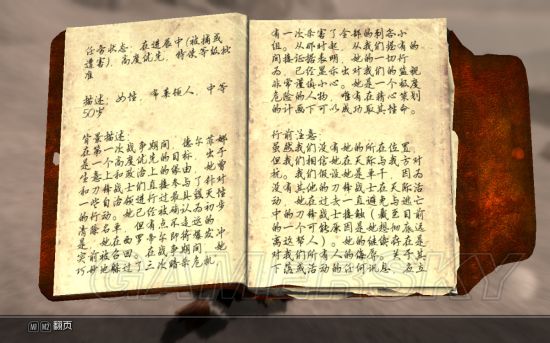 任务状态：在进展中（被捕或
遣害），高度优先，特使等级批
准
描述：女性，布莱顿人，中等
50岁
背景描述：
在第一次战争期间，德尔菲娜
是一个高度优先的目标，出于
生意上和政治上的缘由。她曾
和刀锋战士们直接参与了针对
一些自治领已经进行过最具天性
的行动。她已经被确认为初步
清除名单，但有点不走运的
是，她在西罗帝尔即将爆发冲
突前被召回。在战争期间，她
巧妙地躲过了三次暗杀危机，
有一次杀害了全部的刺客小
组。从那时起，从我们握有的
间接证据表明，她的一切行
为，已经显示出对我们的监视
非常谨慎小心。她是一个极度
危险的人物，唯有在精心策划
的计画下可以成功取其性命。
行前注意：
虽然我们没有她的所在位置，
但我们相信她在天际与我方对
抗。我们假设她是单干，因为
没有其他的刀锋战士在天际活
动，她在过去一直避免与逃亡
中的刀锋战士接触（截至目前
的一个可能原因是她想彻底远
离这帮人）。她的继续存在是
对我们所有人的侮辱，关于其
下落或活动的任何讯息，在立
M1 M2 翻页
GAMERSKY